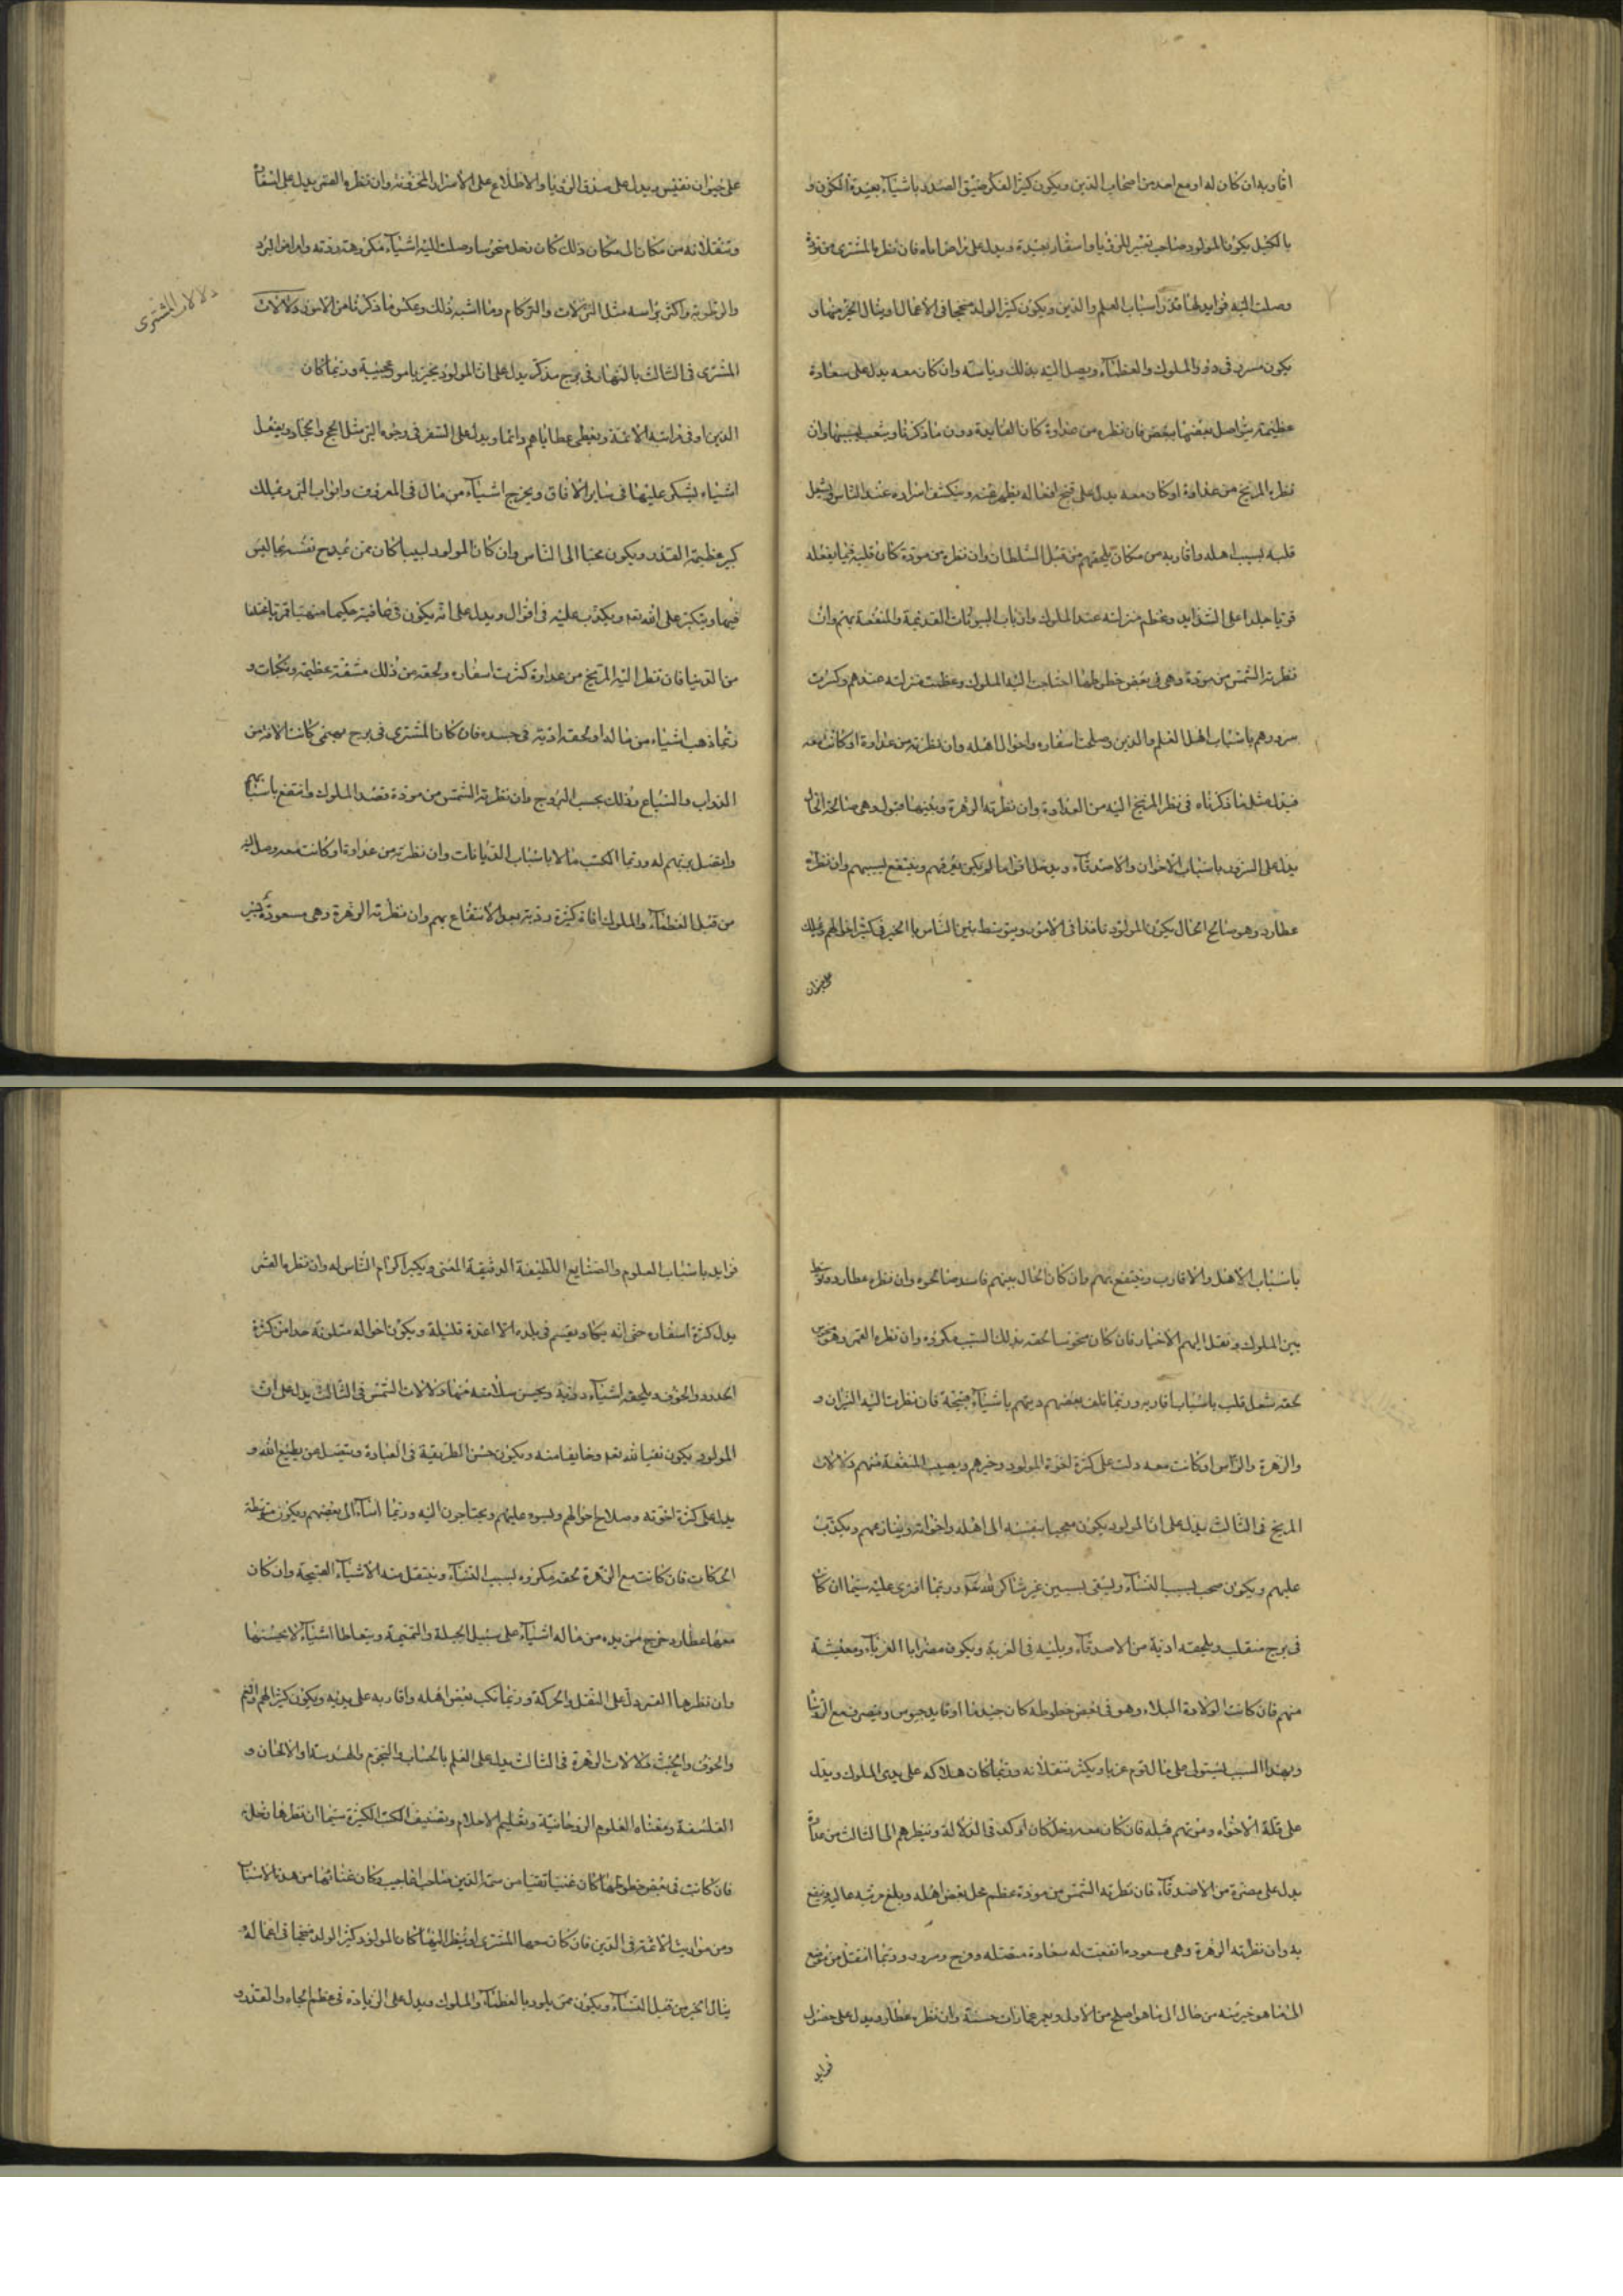 اقاربه ان كان له او مع احد من اصحاب الدين ويكون كثير الفكر ضيق الصدر باشيآء بعيدة الكون و
يكون المولود صاحب تعبير للرؤيا واسفار بعيدة ويدل على امراض اباه فان نظره المشترى من مودة
وصلت اليه فوايد لها قدر باسباب العلم والدين ويكون كثير الولد منجحا فى الاعمال وينال الخير منها و
يكون مسرور فى دور الملوك والعظمآء ويصل اليه بذلك رياسة وان كان معه يدل على سعادة
عظيمة يتواصل بعضها ببعض فان نظره من عداوة كان الفايدة دون ما ذكرنا ويتعب بسببها وان
نظره المريخ من عداوة او كان معه يدل على قبح افعاله يظهر عنه وينكشف اسراره عند الناس ويشغل
قلبه بسبب اهله واقاربه من مكان يلحقهم من قبل السلطان وان نظره من مودة كان قلبه فيما يفعله
قويا جلدا على الشدايد وعظم منزلته عند الملوك وارباب البيوتات القديمة والمنفعة بهم وان
نظرته الشمس من مودة وهى فى بعض حظوظها احتاجت اليه الملوك وعظمت منزلته عندهم وكثرت
سرورهم باسباب اهل العلم والدين وصلحت اسفاره واحوال اهله وان نظرته من عداوة او كانت معه
فيدل مثل ما ذكرناه فى نظر المريخ اليه من العداوة وان نظرته الزهرة وبينهما قبول وهى صالحة الحال
يدل على السرور باسباب الاخوان والاصدقآء ويدخل اقواما لم يكن يعرفهم وينتفع بسببهم وان نظره
عطارد وهو صالح الحال يكون المولود نافذا فى الامور ويتوسط بين الناس بالخير فى كثير احوالهم ويملك
على حيوان
على حيوان نفيس ويدل على صدق الرؤيا والاطلاع على الاسرار المخزونة وان نظره القمر يدل على اسفار
وتنقلاته من مكان الى مكان ذلك كان زحل منحوسا وصلت اليه اشيآء مكروهة ردية وامراض البرد
والرطوبة واكثر براسه مثل النزلات والزكام وما اشبه ذلك وعكس ما ذكرنا من الامور دلالات
دلالات المشترى
المشترى فى الثالث بالنهار فى برج مذكر يدل على ان المولود يخبر بامور عجيبة وربما كان
الدين او فى مراتبه الائمة ويعطى عطاياهم وانما ويدل على السفر فى وجوه البر مثل الحج والجهاد ويفعل
اشياء يشكر عليها فى ساير الافاق ويخرج اشيآء من مال فى المعروف وابواب البر ويملك
كبير عظيمة القدر ويكون محببا الى الناس وان كان المولود لبيبا كان ممن يمدح نفسه بما ليس
فيها ويتكبر على الله تعه ويكذب عليه فى اقوال ويدل على انه يكون فى عافية حكيما
من الدنيا فان نظر اليه المريخ من عداوة كثرت اسفاره ولحقه من ذلك مشقة عظيمة ونكبات و
ربما ذهب اشياء من ماله او لحقه اذية فى جسده فان كان المشترى فى برج بهيمى كانت الافة من
الدواب والسباع وذلك بحسب البروج وان نظرته الشمس من مودة قصد الملوك وانتفع باسبابهم
واتصل برهم له وربما اكتسب مالا باسباب الديانات وان نظرته من عداوة او كانت معه وصل اليه
من قبل العظمآء والملوك افاة كثيرة ردية بعد الانتفاع بهم وان نظرته الزهرة وهى مسعودة يخبر
باسباب الاهل والاقارب وينتفع بهم وان كان الحال بينهم فاسد صالحوه وان نظره عطارد توسط
بين الملوك ونقل اليهم الاخبار فان كان منحوسا لحقه بذلك السبب مكروه وان نظره القمر وهو منحوس
لحقه شغل قلب باسباب اقاربه وربما تلف بعضهم ويتهم باشيآء قبيحة فان نظرت اليه النيران و
والزهرة والراس او كانت معه دلت على كثرة اخوة المولود وخيرهم ويصيب المنفعة منهم دلالات
المريخ فى الثالث يدل على ان المولود يكون معجبا بنفسه الى اهله واخوانه وينازعهم ويكذب
عليهم ويكون صحب بسبب النسآء ويبقى غير شاكر لله تعه وربما افترى عليه سيما ان كان
فى برج منقلب ويلحقه اذية من الاصدقآء وبلية فى الغربة ويكون مضرا بالغربآء ومعيشة
منهم فان كانت الولادة ليلا وهو فى بعض حظوظه كان جنديا او قايد جيوش ويتصرف مع الروسا
وبهذا السبب يستولى على مال قوم غربا ويكثر تنقلاته وربما كان هلاكه على يدى الملوك ويدل
على قلة الاخوة وموتهم قبله فان كان معه زحل كان اوكد فى الدلالة ونظرهم الى الثالث من عداوة
يدل على مضرة من الاصدقآء فان نظرته الشمس من مودة عظم محل بعض اهله وبلغ مرتبه عالية وينتفع
به وان نظرته الزهرة وهى مسعودة اتفقت له سعادة متصلة وفرح وسرور وربما انتقل من موضع
الى ما هو خير منه من حال الى ما هو اصلح من الاولى ويعمر عمارات حسنة وان نظره عطارد يدل على حصول
فوايد
فوايد باسباب العلوم والصنايع اللطيفة الدقيقة المعنى ويكثر اكرام الناس له وان نظره القمر
يدل كثرة اسفاره حتى انه يكاد يقيم فى بلده الا مدة قليلة ويكون احواله متلونة جدا من كثرة
الحدود والخوف ويلحقه اشيآء ردية ويحسن سلامته منها دلالات الشمس فى الثالث يدل على ان
المولود يكون تقيا لله تعه وخايفا منه ويكون حسن الطريقة فى العبادة ويتصل بمن يطيع الله و
يدل على كثرة اخوته وصلاح احوالهم ويسوء عليهم ويحتاجون اليه وربما اسآء الى بعضهم ويكون متوسطة
الحكام فان كانت مع الزهرة لحقه مكروه بسبب النسآء وينتقل منه الاشيآء القبيحة وان كان
معها عطارد خرج من يده من ماله اشيآء على سبيل الحيلة والتميمة ويتعاطا اشيآء لا يحسنها
وان نظرها القمر دل على النقل والحركة وربما نكب بعض اهله واقاربه على يديه ويكون كثير الهم والغم
والخوف والخبث دلالات الزهرة فى الثالث يدل على العلم بالحساب والنجوم والهندسة والالحان و
الفلسفة ومعناه العلوم الروحانية وتعليم الاحلام وتصنيف الكتب الكثيرة سيما ان نظرها زحل
فان كانت فى بعض حظوظها كان غنيا تقيا من سدا الدين صاحب اعاجيب وكان غناؤها من هذه الاسباب
ومن مواريث الائمة فى الدين فان كان معها المشترى او نظر اليها كان المولود كثير الولد منجحا فى اعماله و
ينال الخير من قبل النسآء ويكون ممن يلوذ بالعظمآء والملوك ويدل على الزيادة فى عظم الجاه والقدر و